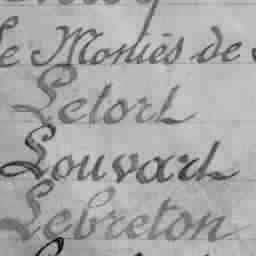 Le Moniès de
Letort
Louvart
Lebreton